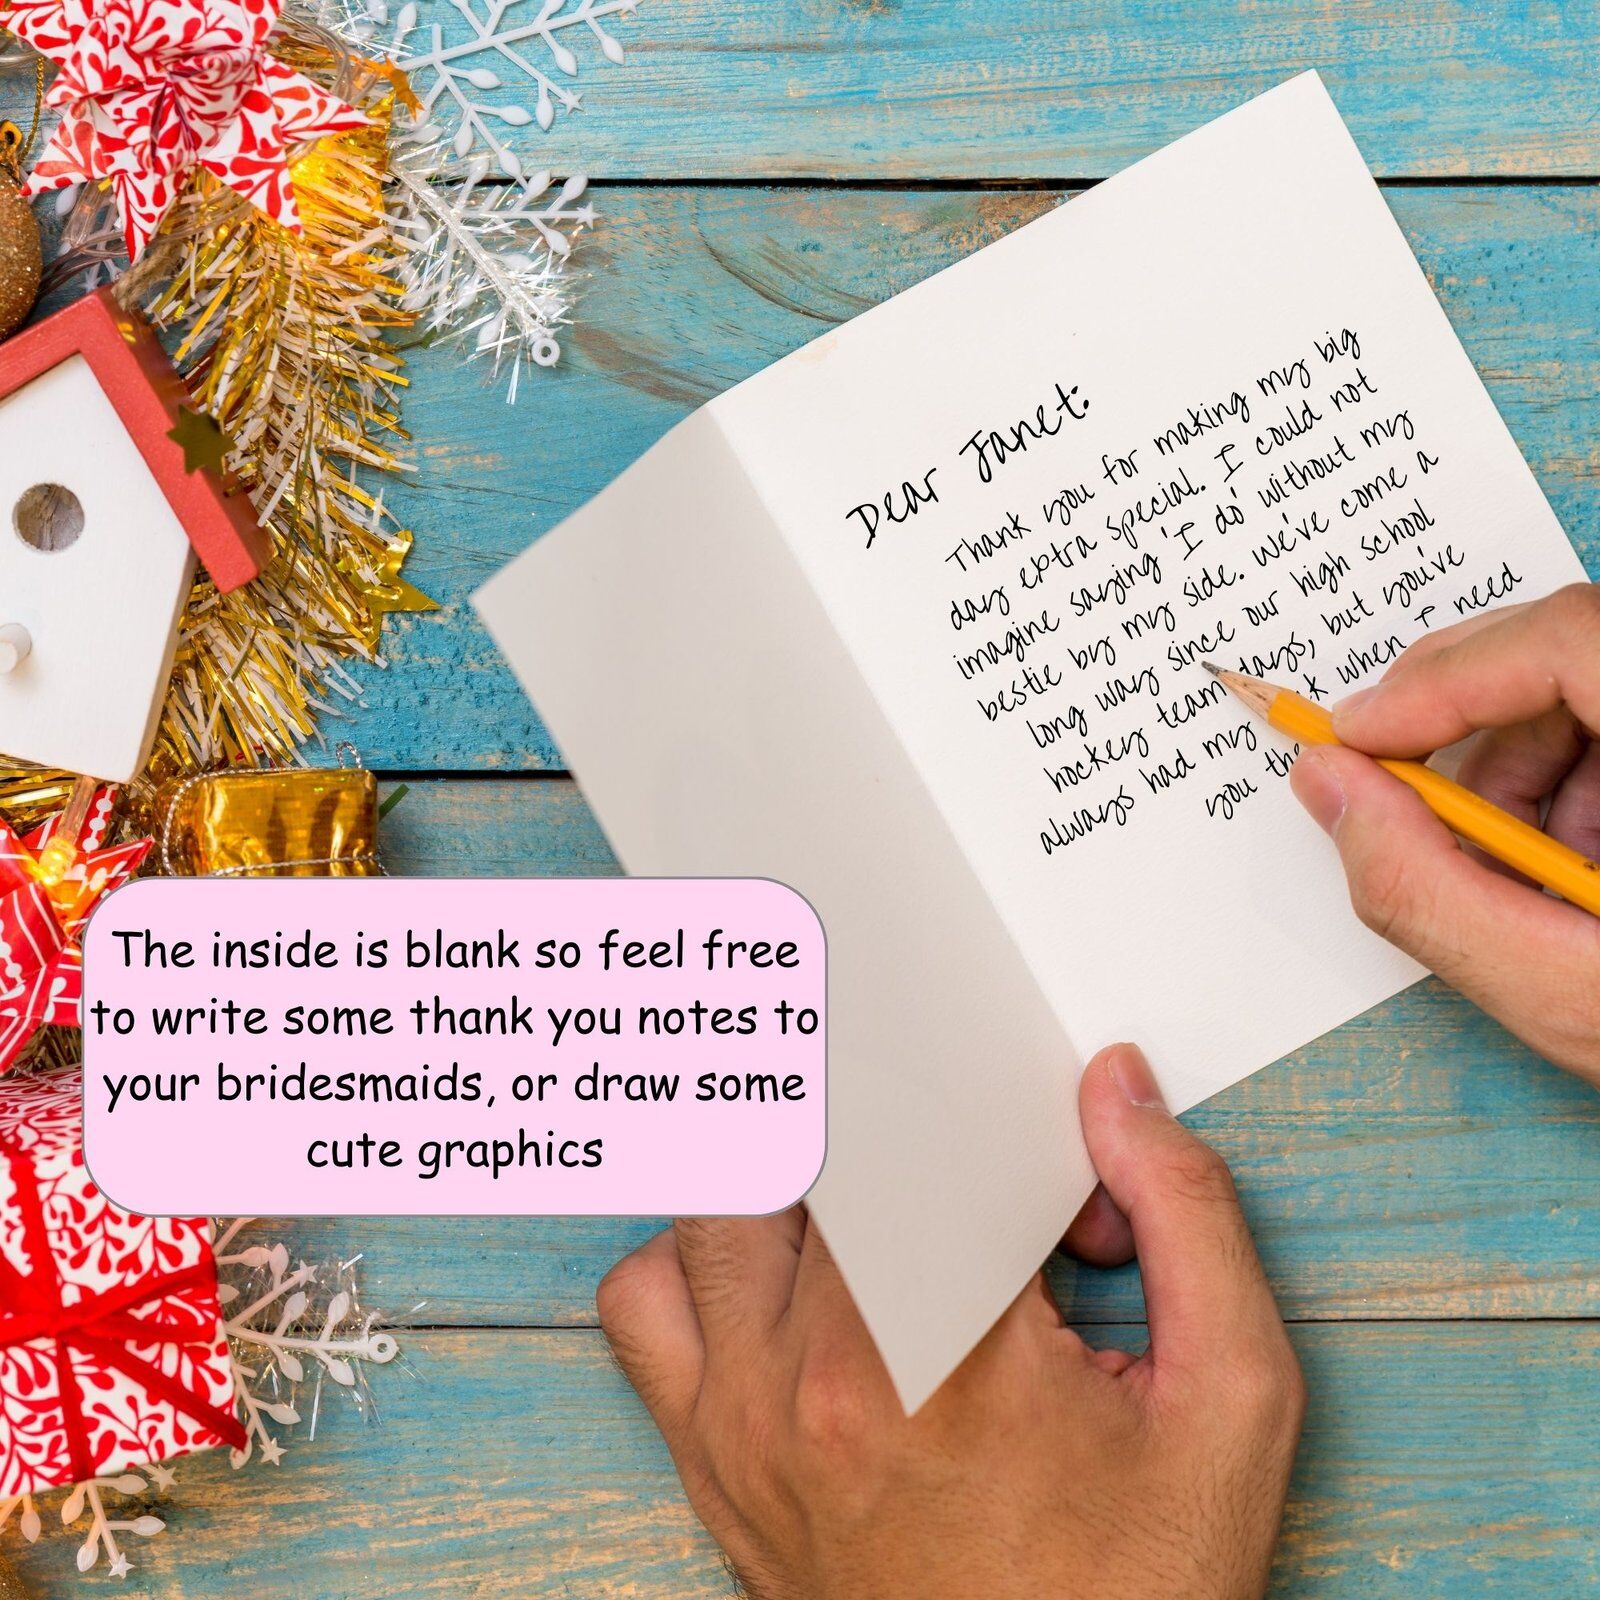 Dear Janet:
Thank you for making my big
day extra special. I could not
imagine saying 'I do' without my
bestie by my side. We've come a
long way since our high school
hockey team days, but you've
always had my when I need
you
The inside is blank so feel free
to write some thank you notes to
your bridesmaids, or draw some
cute graphics